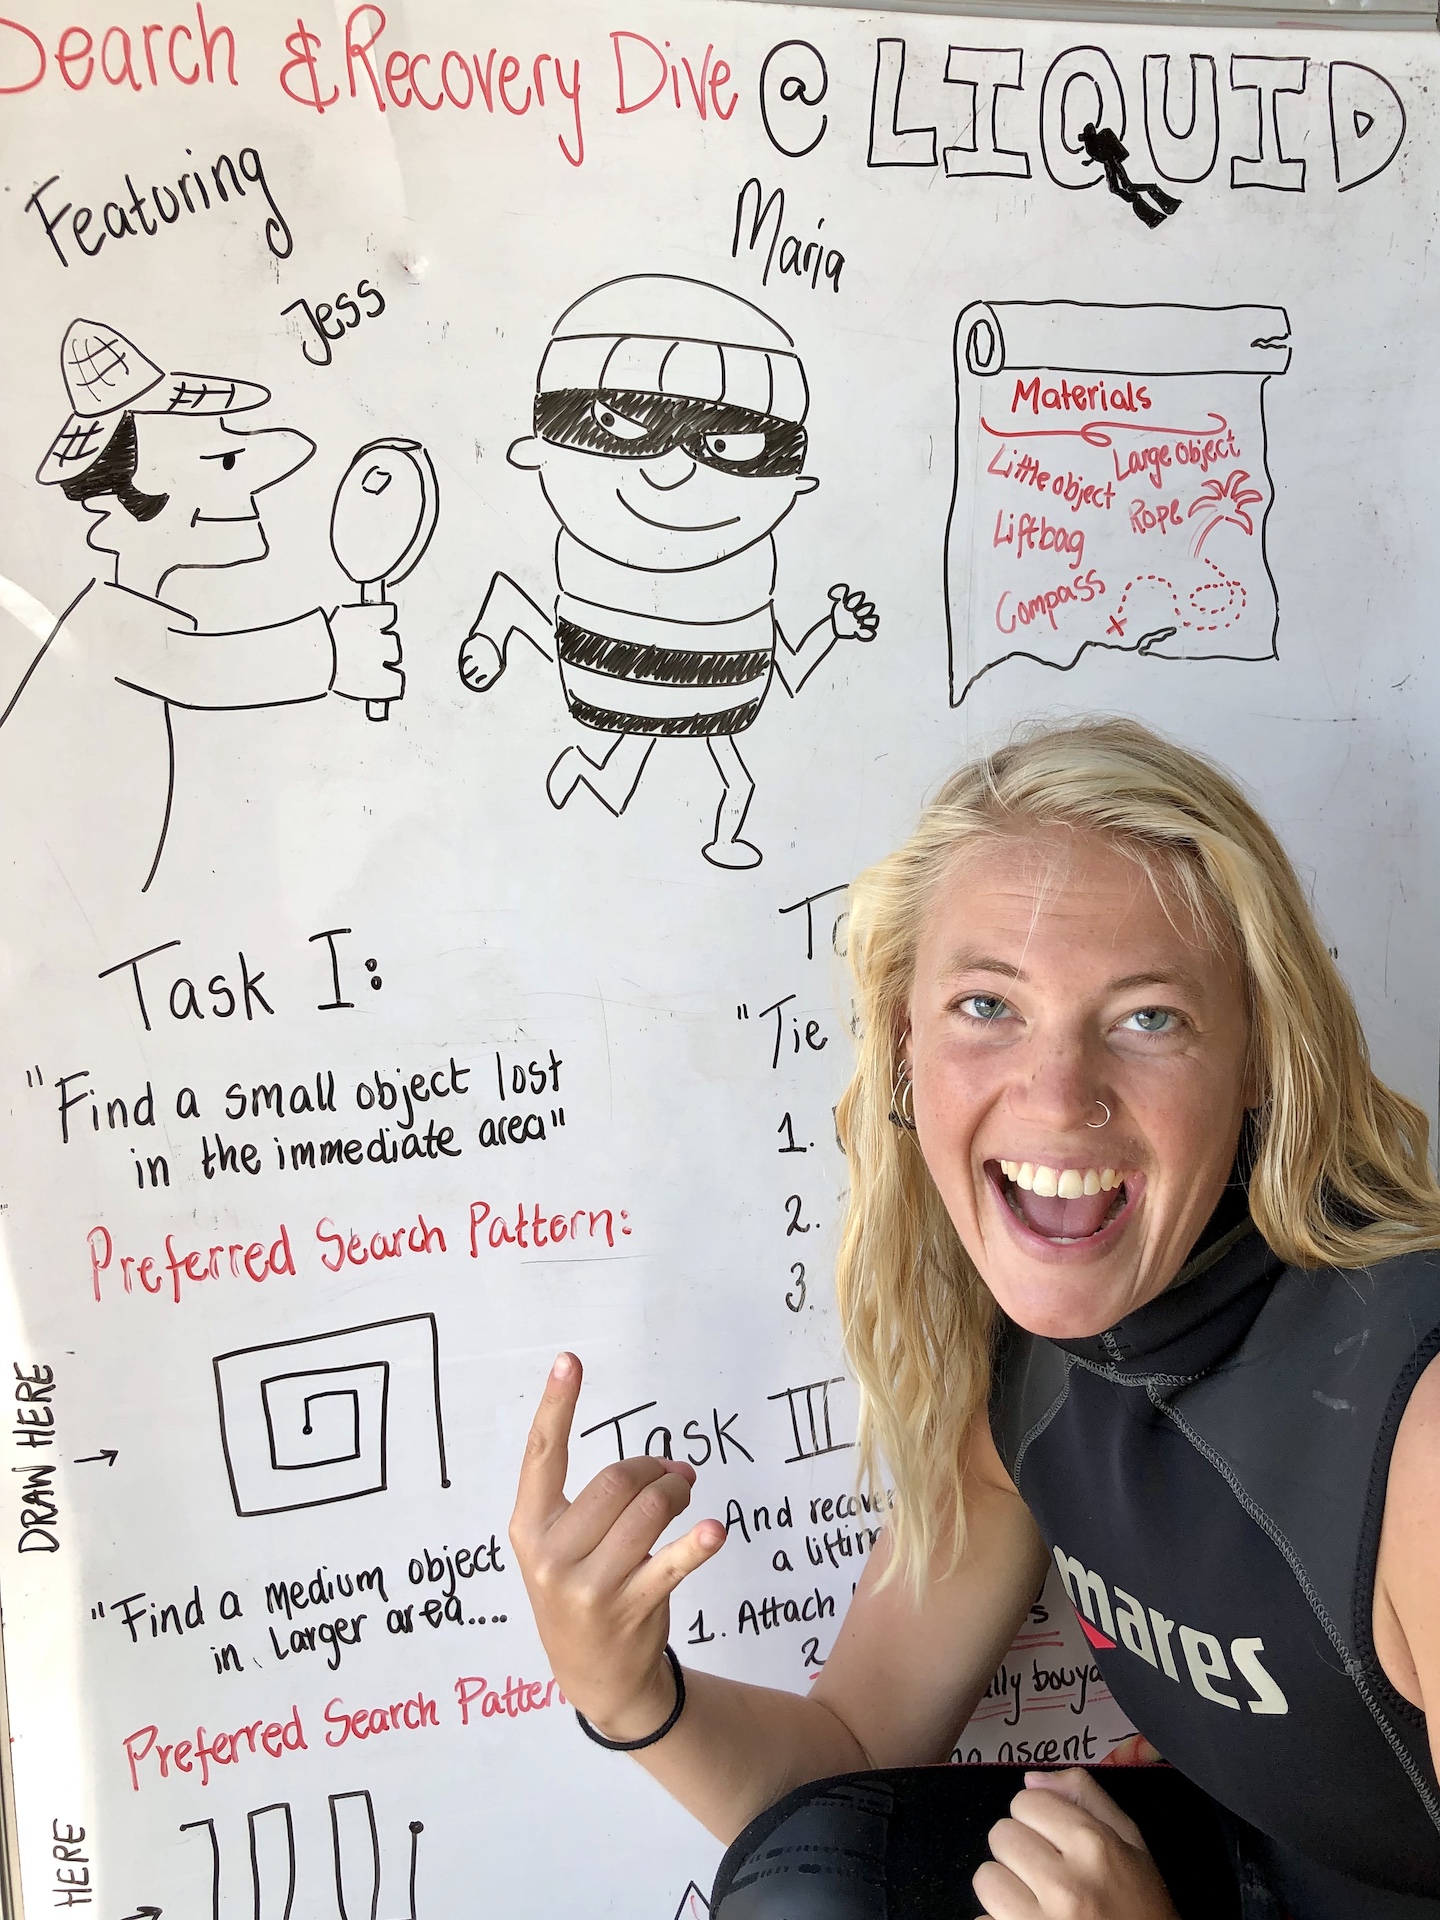 Search & Recovery Dive @ LIQUID
Featuring
Jess
Maria
Materials
Little object
Large object
Liftbag
Rope
Compass
x
Task I:
"Find a small object lost
in the immediate area"
Preferred Search Pattern:
DRAW HERE
"Find a medium object
in Larger area....
Preferred Search Pattern
HERE
"Tie
1.
2.
3.
Task III
And recover
a lifting
1. Attach
2
bouya
ascent
mares